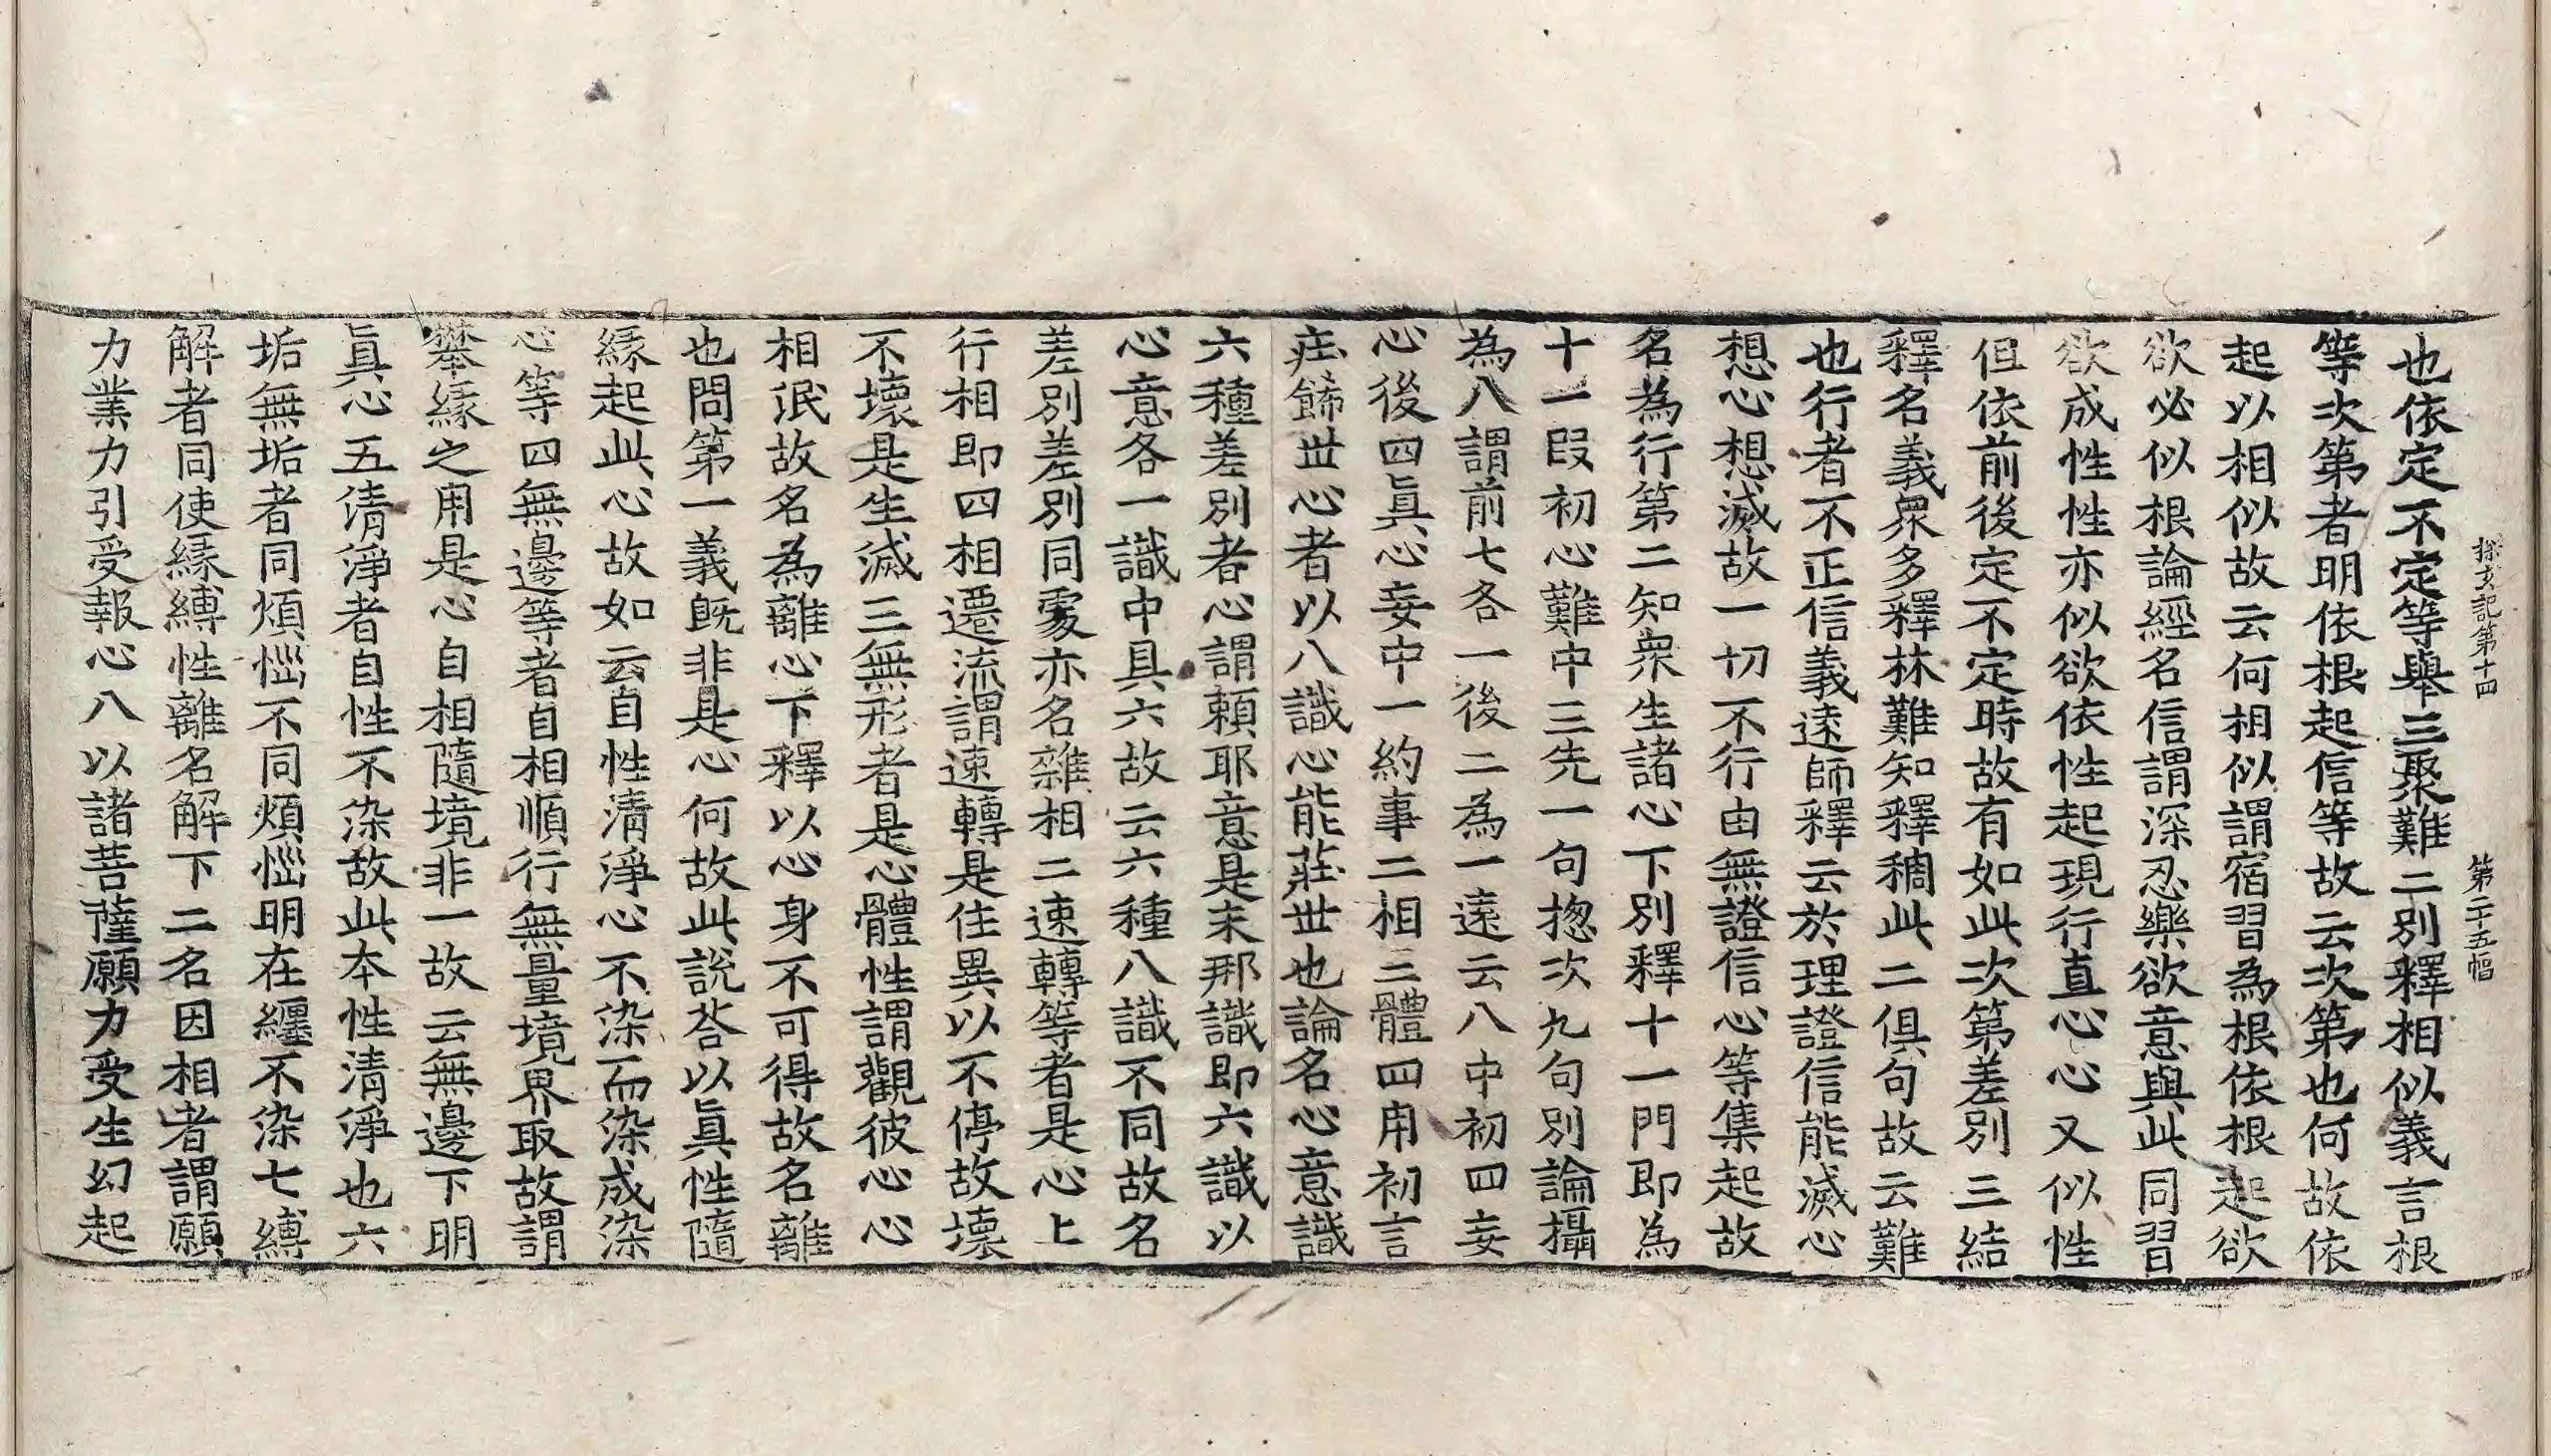 探玄記第十四　第二十五幅
也依定不定等舉三聚難二別釋相似義言根
等次第者明依根起信等故云次第也何故依
起以相似故云何相似謂宿習為根依根起欲
欲必似根論經名信謂深忍樂欲意與此同習
欲成性性亦似欲依性起現行直心心又似性
但依前後定不定時故有如此次第差別三結
釋名義衆多釋林難知釋稠此二俱句故云難
也行者不正信義遠師釋云於理證信能滅心
想心想滅故一切不行由無證信心等集起故
名為行第二知衆生諸心下別釋十一門即為
十一段初心難中三先一句揔次九句別論攝
為八謂前七各一後二為一遠云八中初四妄
心後四眞心妄中一約事二相三體四用初言
莊餙世心者以八識心能莊世也論名心意識
六種差別者心謂賴耶意是末那識即六識以
心意各一識中具六故云六種八識不同故名
差別差別同處亦名雜相二速轉等者是心上
行相即四相遷流謂速轉是住異以不停故壞
不壞是生滅三無形者是心體性謂觀彼心心
相泯故名為離心下釋以心身不可得故名離
也問第一義旣非是心何故此說荅以眞性隨
緣起此心故如云自性清淨心不染而染成染
心等四無邊等者自相順行無量境界取故謂
攀緣之用是心自相隨境非一故云無邊下明
眞心五清淨者自性不染故此本性清淨也六
垢無垢者同煩惱不同煩惱明在纏不染七縛
解者同使縁縛性離名解下二名因相者謂願
力業力引受報心八以諸菩薩願力受生幻起